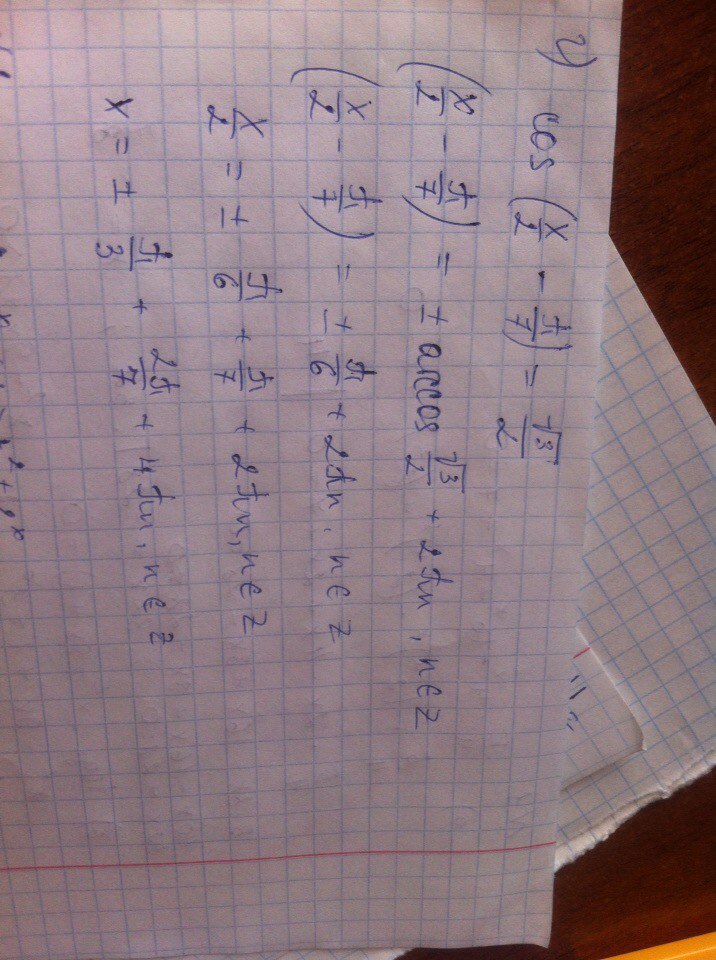 2) cos (x/2 - π/7) = √3/2
(x/2 - π/7) = ± arccos √3/2 + 2πn, n∈z
(x/2 - π/7) = ± π/6 + 2πn, n∈z
x/2 = ± π/6 + π/7 + 2πn, n∈z
x = ± π/3 + 2π/7 + 4πn, n∈z